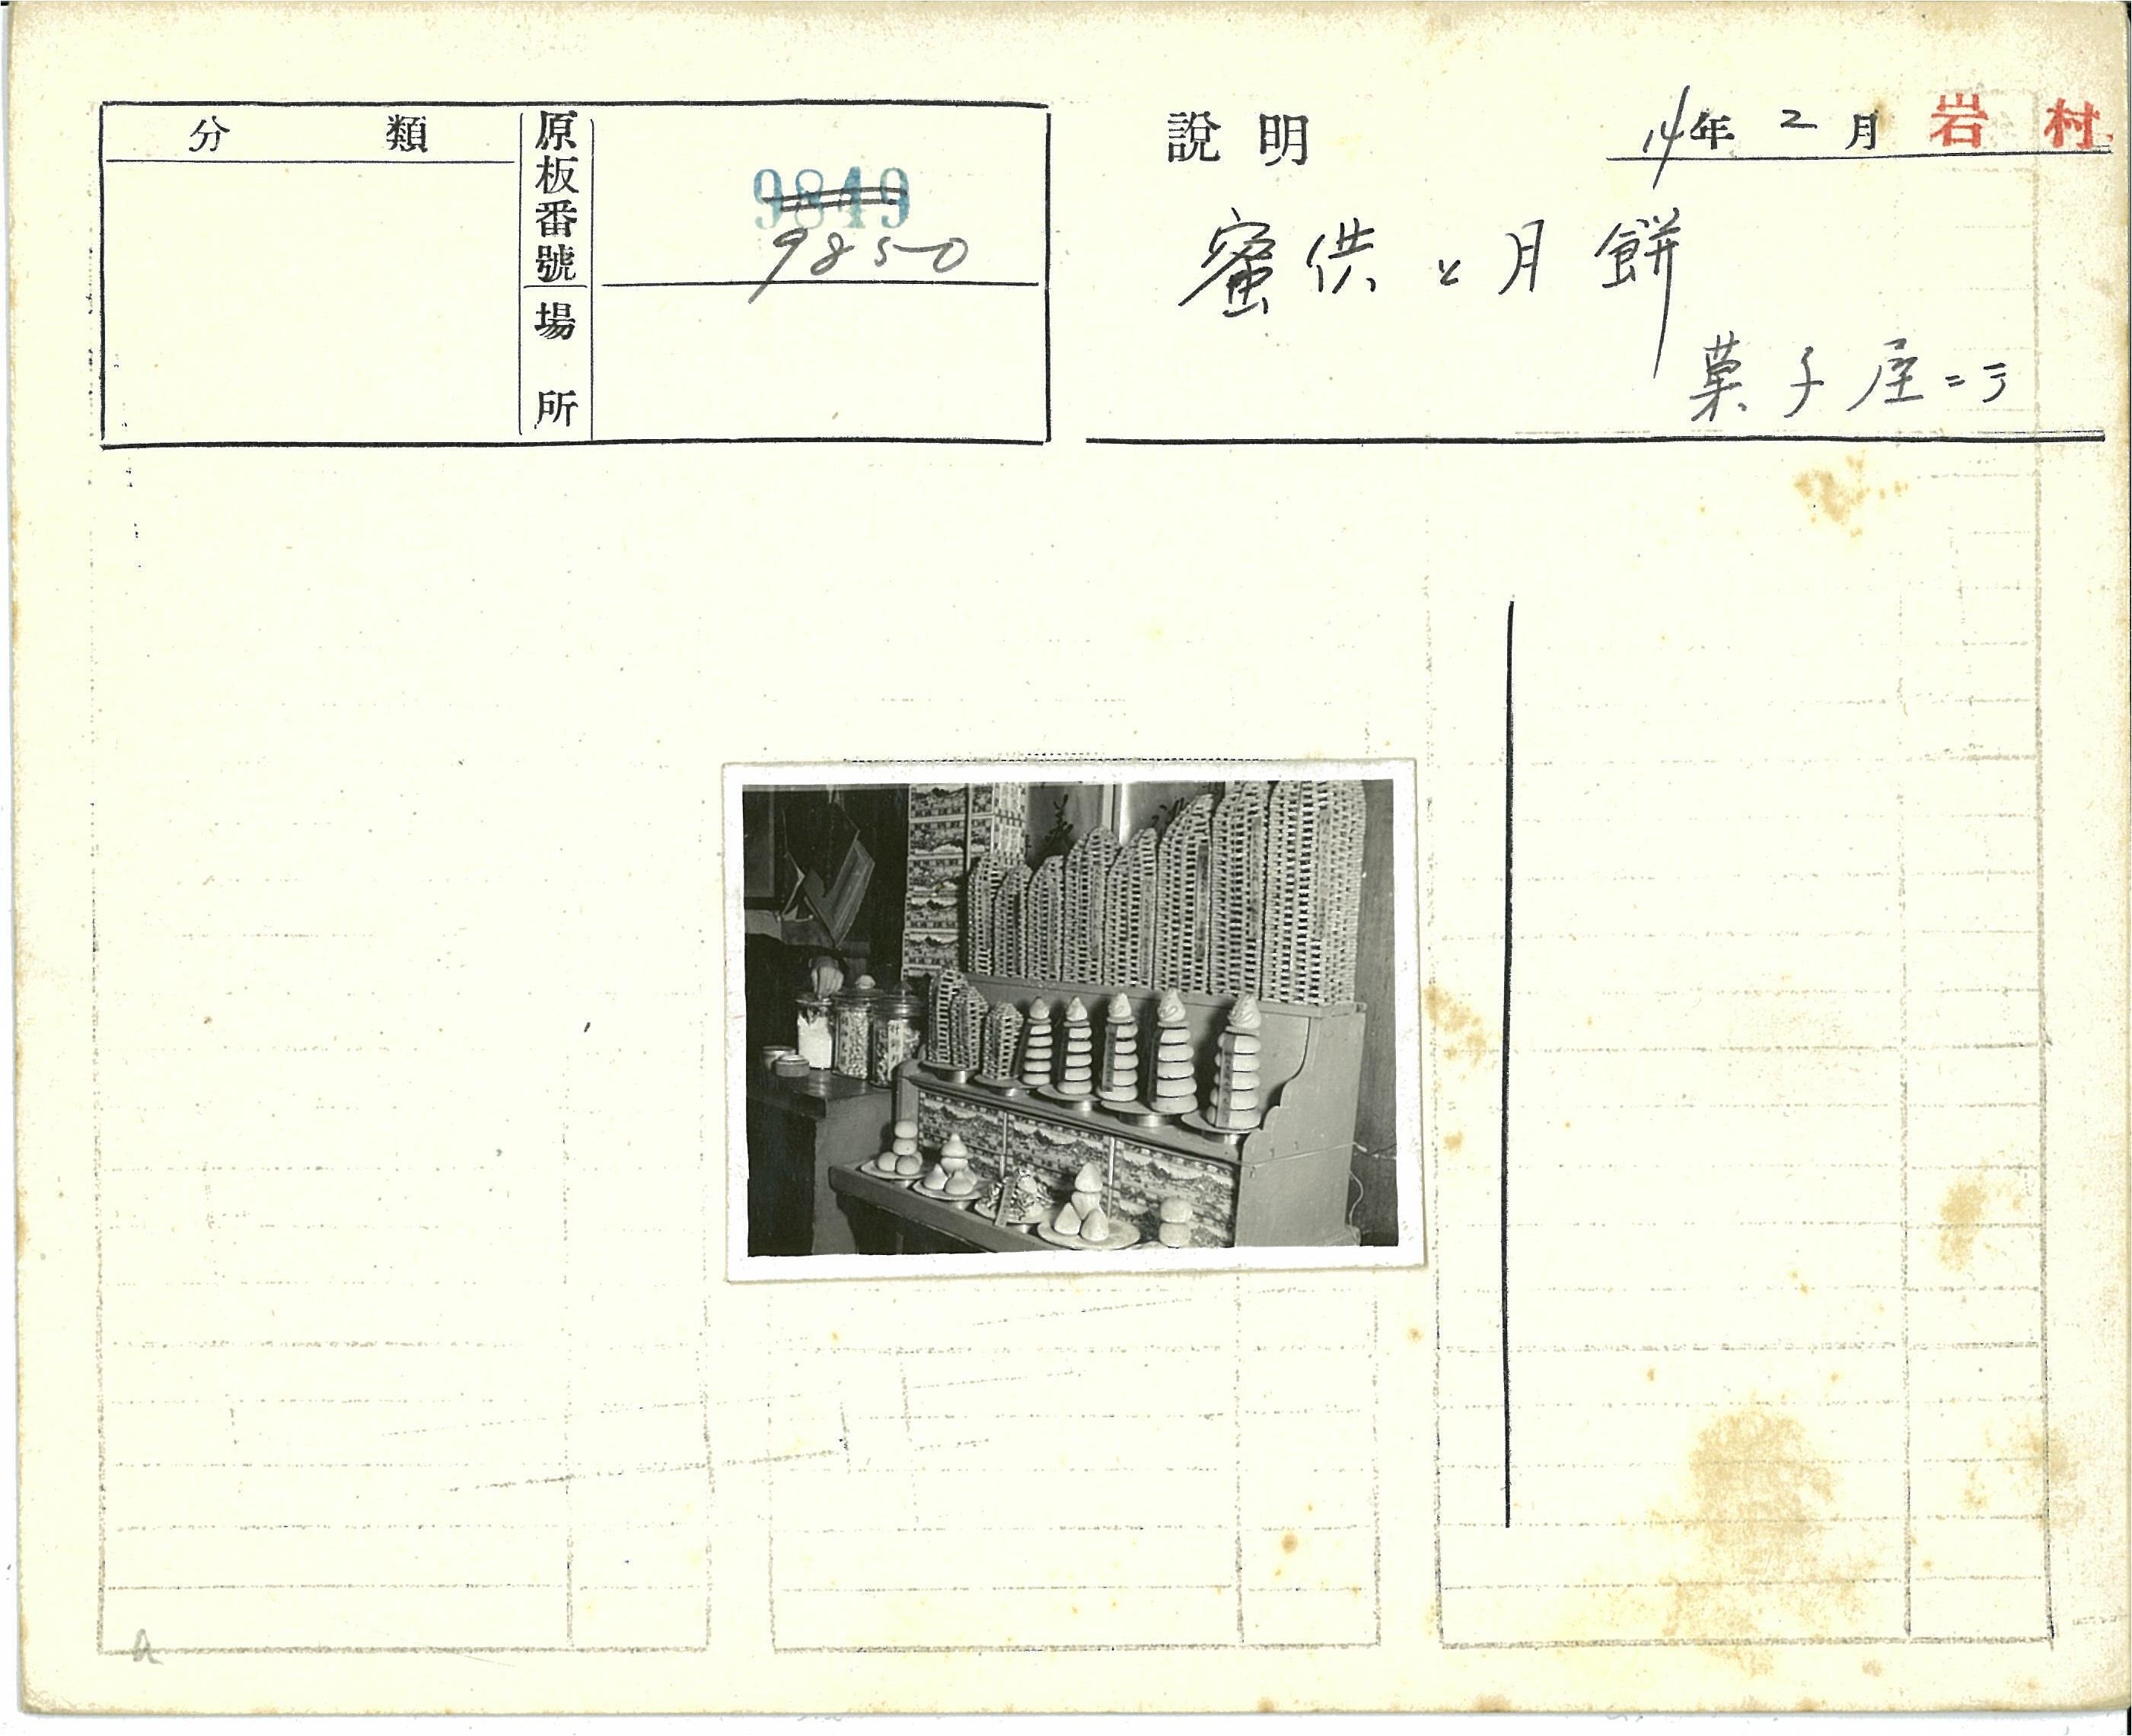 分類
原板番號
9849
9850
場所
說明
14年2月 岩村
蜜供と月餅
菓子屋ニテ